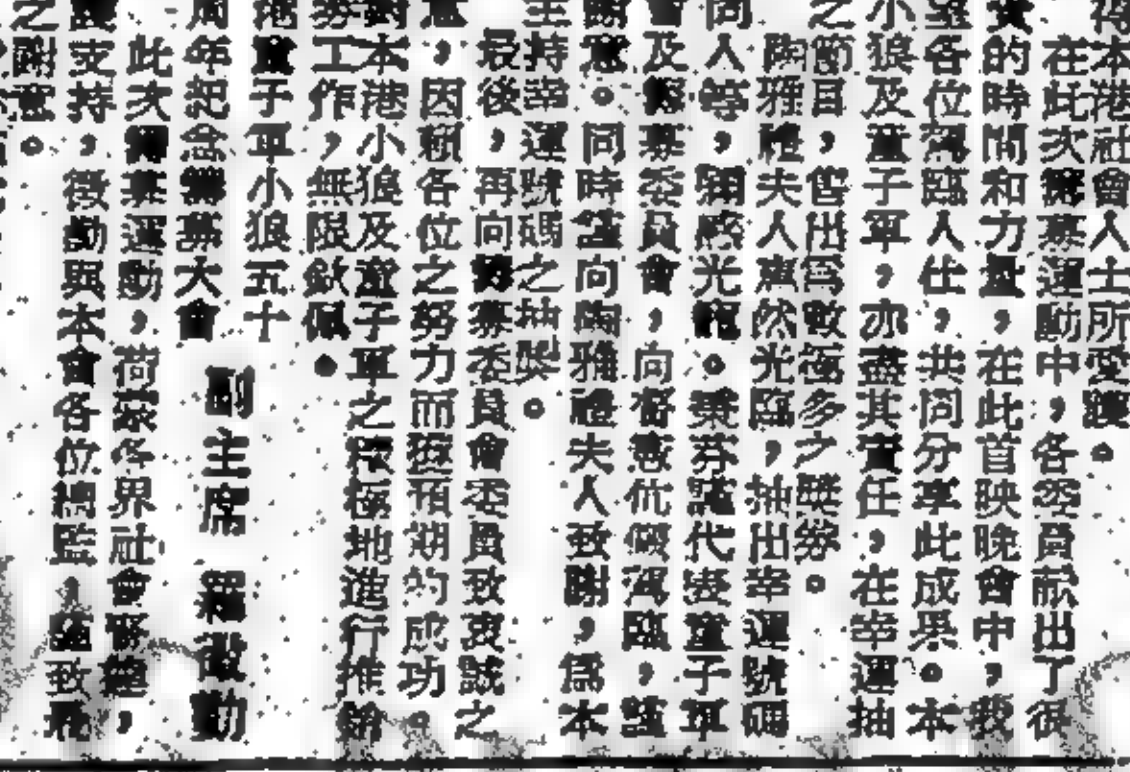 得本港社會人士所愛護。
在此次籌募運動中，各委員献出了很
的時間和力量，在此首映晚會中，我
各位駕臨人仕，共同分享此成果。本
小狼及童子軍，亦盡其責任，在幸運抽
之節目，皆出爲收極多之獎券。
陶雅禮夫人惠然光臨，抽出幸運號碼
同人等，深感光寵。葉芬謹代表童子軍
會及籌募委員會，向各惠伉儷駕臨，謹
謝意。同時謹向陶雅禮夫人致謝，爲本
主持幸運號碼之抽獎。
最後，再向籌募委員會委員致衷誠之
意，因賴各位之努力而獲預期的成功。
對本港小狼及童子軍之積極地進行推銷
券工作，無限欽佩。
港童子軍小狼五十
周年紀念籌募大會
副主席 羅徵勤
此次籌募運動，荷蒙各界社會賢達，
支持，徵勤與本會各位總監，謹致
之謝意。